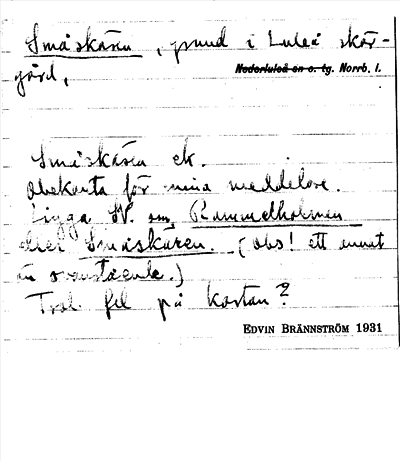 Småskären, grund i Luleå skär-
gård,
Nederluleå sn o. tg. Norrb. l.
Småskären ek.
Obekanta för mina meddelare.
Ligga SV. om Rammelholmen
eller Småskären. (obs! ett annat
än ovanstående.)
Trol fel på kartan?
EDVIN BRÄNNSTRÖM 1931